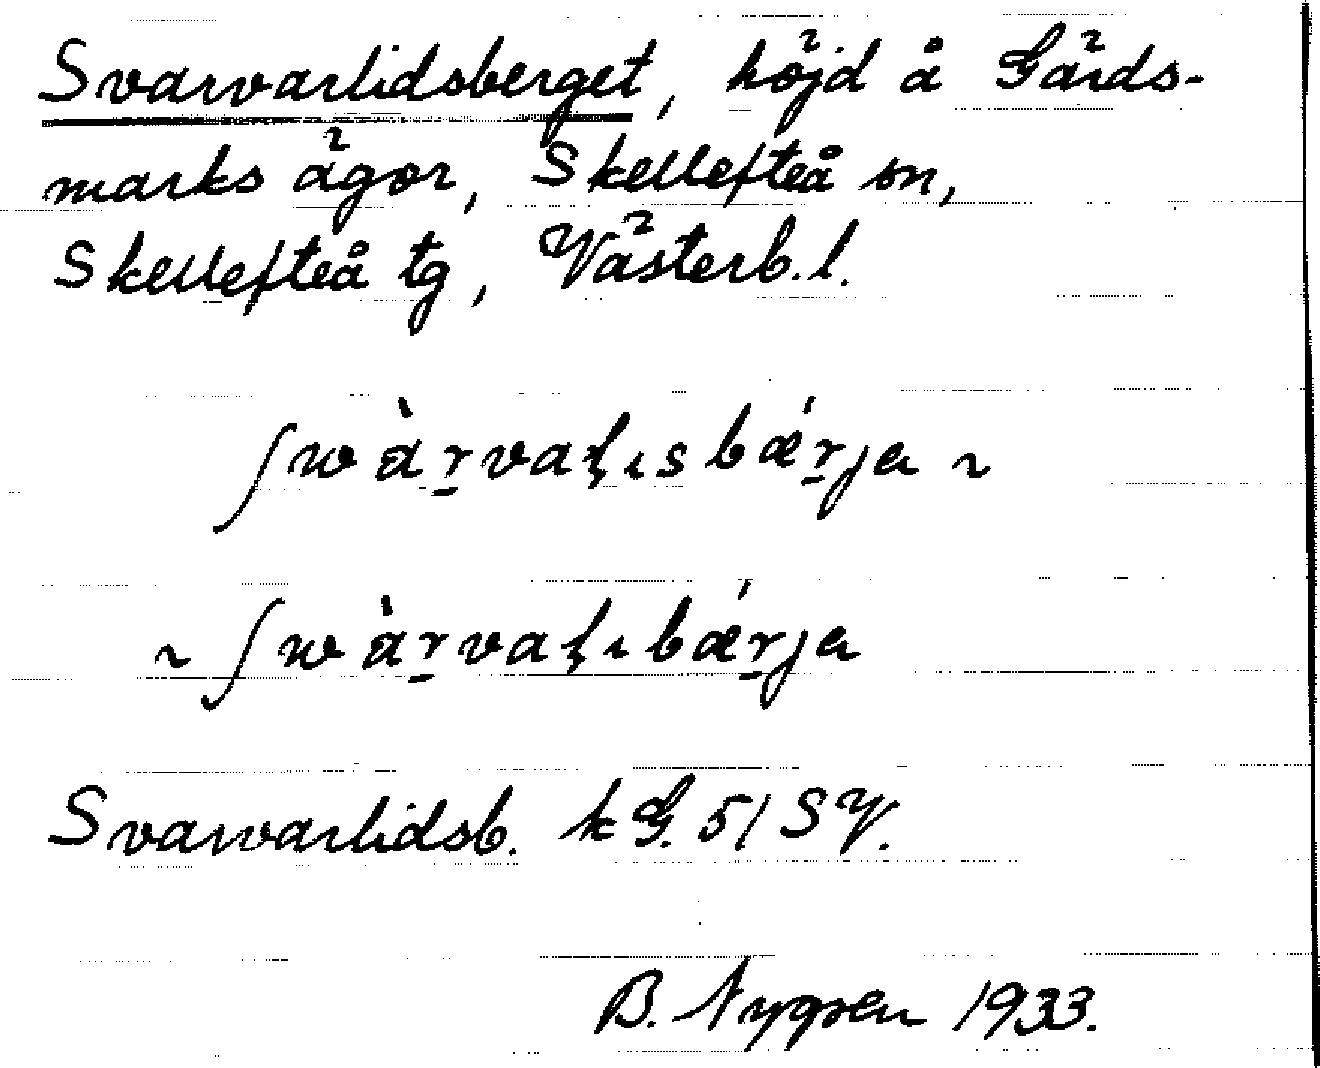 Svarvarlidsberget, höjd å Gärds-
marks ägor, Skellefteå sn,
Skellefteå tg, Västerb. l.
ʃwàr̠vaɭɩsbǽr̠ja ~
~ ʃwàr̠vaɭɩbǽr̠ja
Svarvarlidsb. kG. 51 SV.
B. Nygren 1933.